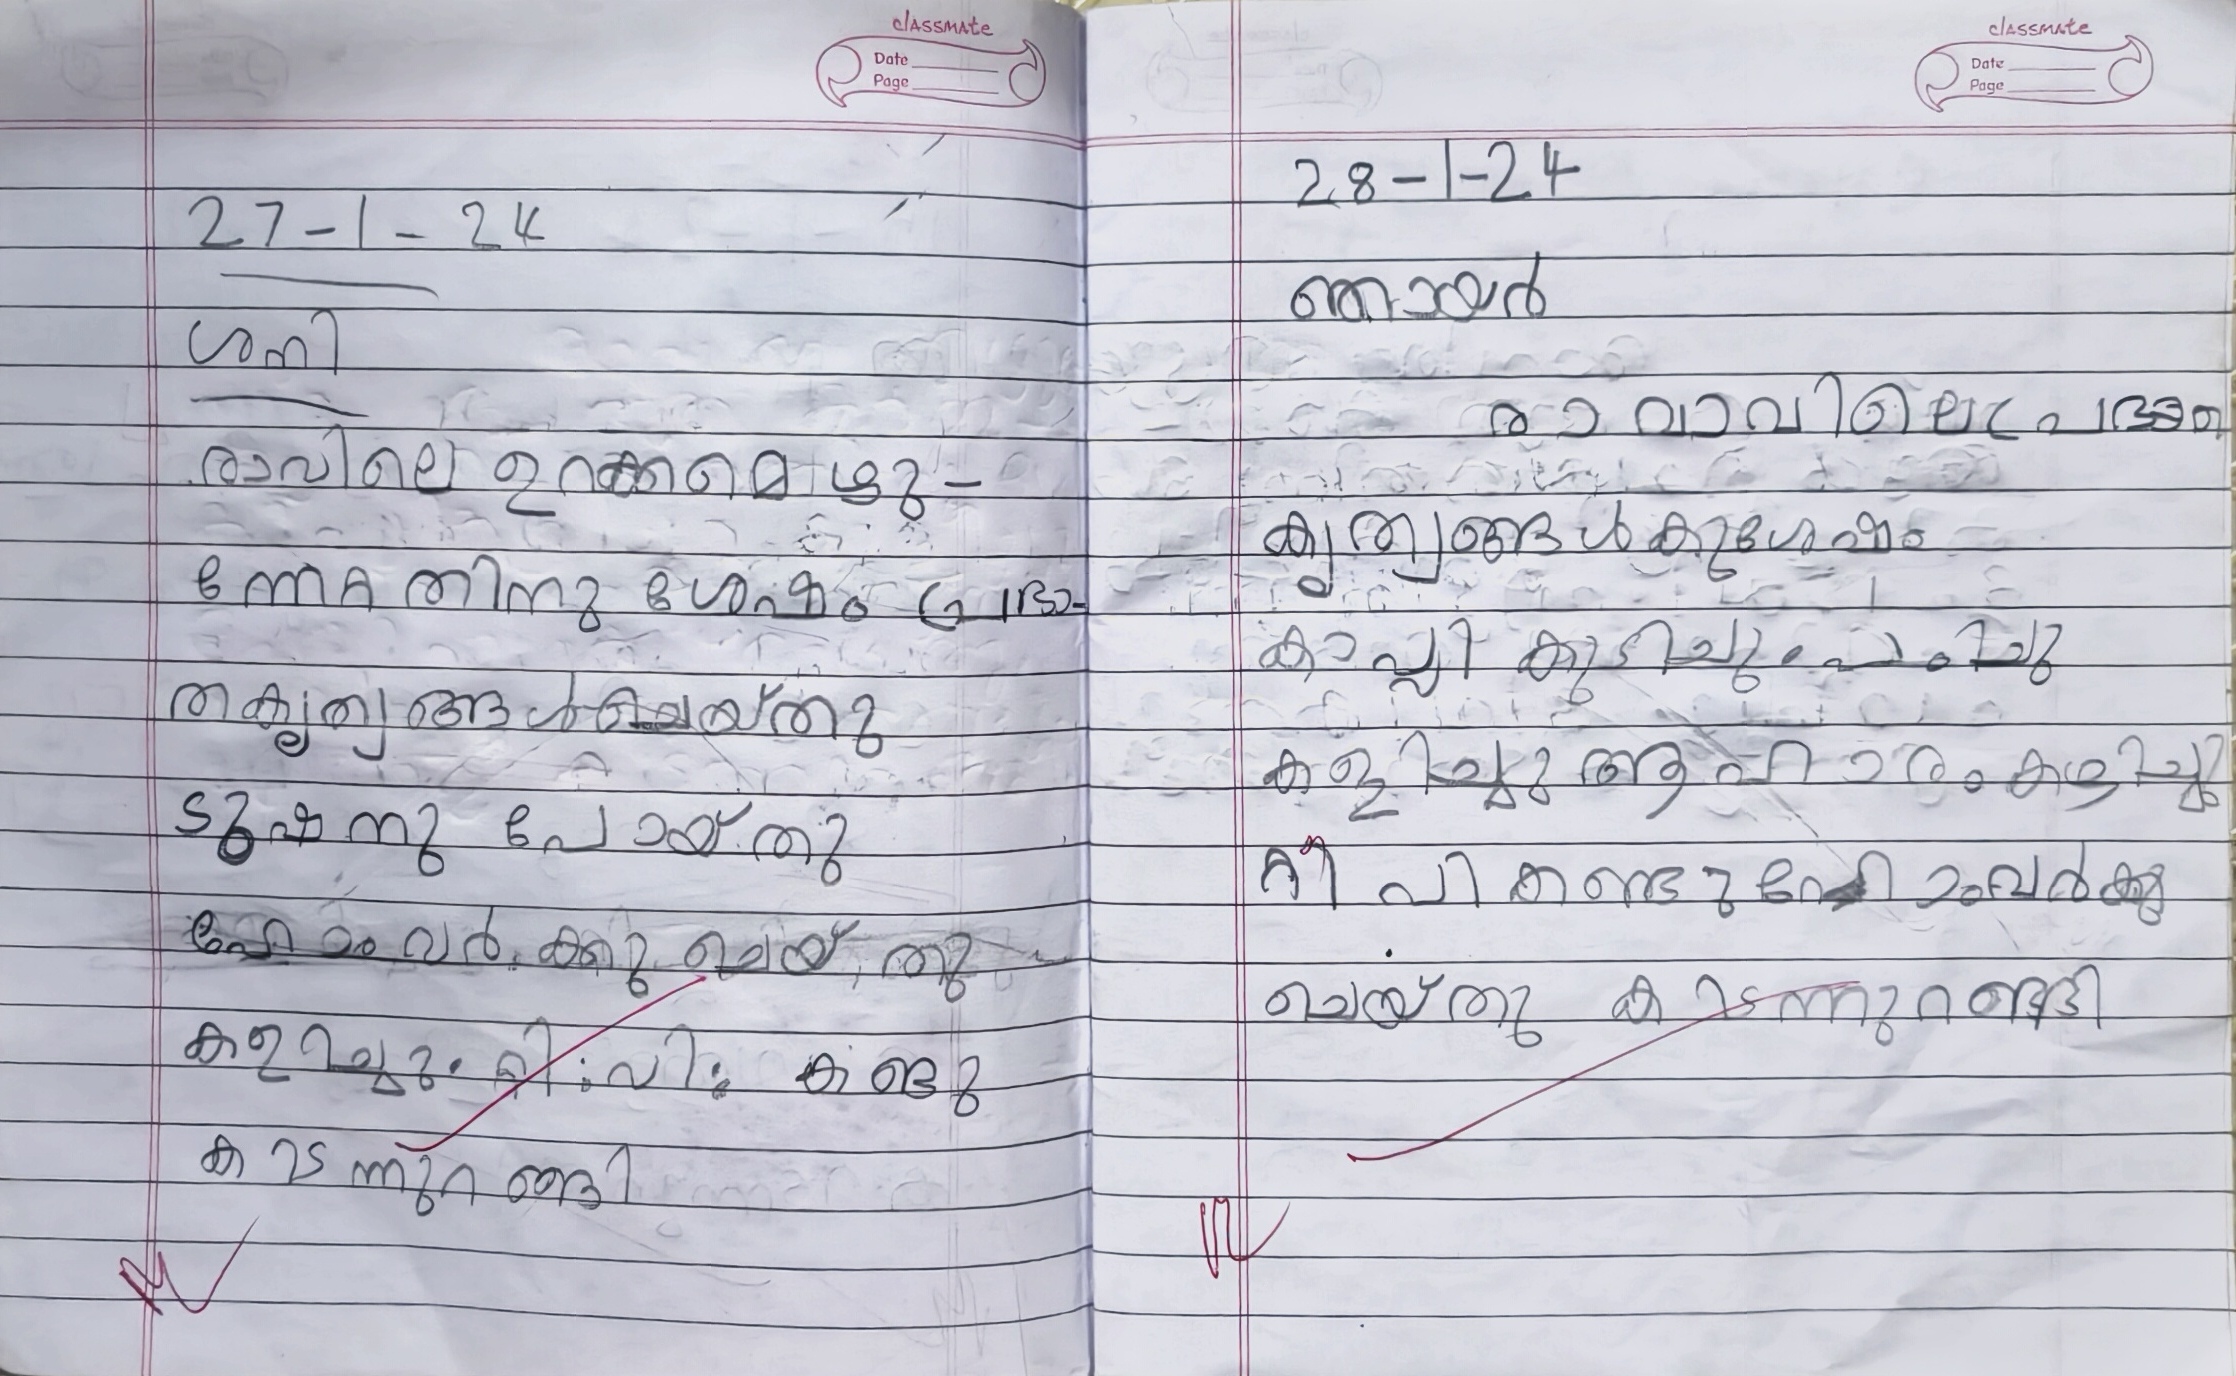 classmate
Date
Page
27-1-24
ശനി
രാവിലെ ഉറക്കമെഴു-
ന്നേറ്റതിനു ശേഷം പ്രഭാ-
തകൃത്യങ്ങൾ ചെയ്തു
ടൂഷനു പോയ്തു
ഹോംവർക്കു ചെയ്തു
കളിച്ചു. റ്റി:വി: കണ്ടു
കിടന്നുറങ്ങി
classmate
Date
Page
28-1-24
ഞായർ
രാവാവിലെ പ്രഭാത
കൃത്യങ്ങൾകുശേഷം
കാപ്പി കുടിച്ചു.
കളിച്ചു ആഹാരം കഴിച്ചു
റ്റീ വി കണ്ടു ഹോംവർക്കു
ചെയ്തു കിടന്നുറങ്ങി